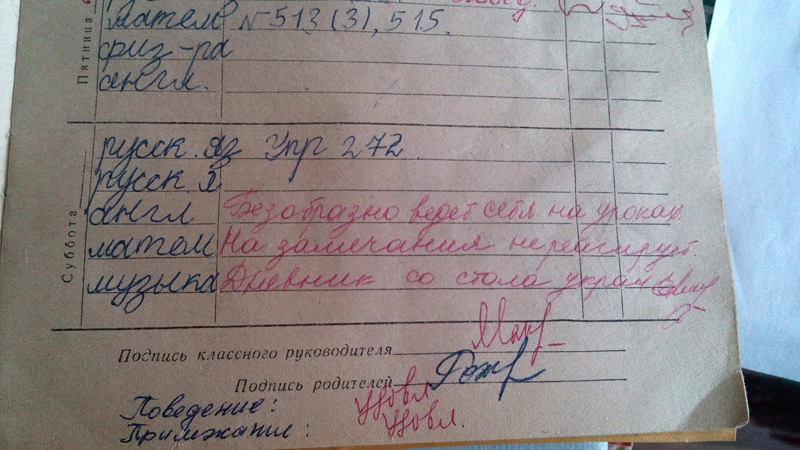 Пятница
матем N 513 (3), 515.
физ-ра
англ.
Суббота
русск. яз Упр 272
русск. я
англ Безобразно ведет себя на уроках.
матем На замечания не реагирует.
музыка Дневник со стола украл
Подпись классного руководителя
Подпись родителей
Поведение: удовл
Прилежание: удовл.